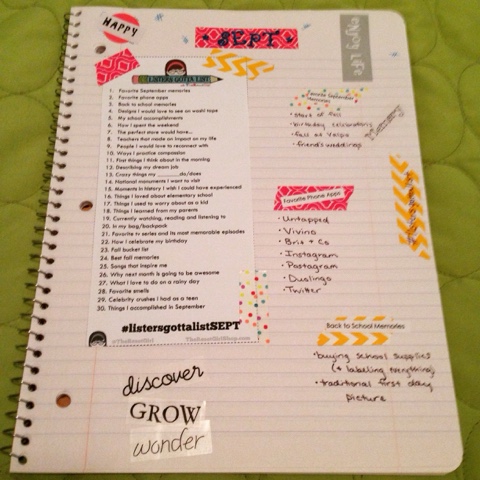 HAPPY
SEPT
enjoy LiFe
LISTERS GOTTA LIST
1. Favorite September memories
2. Favorite phone apps
3. Back to school memories
4. Designs I would love to see on washi tape
5. My school accomplishments
6. How I spent the weekend
7. The perfect store would have...
8. Teachers that made an impact on my life
9. People I would love to reconnect with
10. Ways I practice compassion
11. First things I think about in the morning
12. Describing my dream job
13. Crazy things my ______ do/does
14. National monuments I want to visit
15. Moments in history I wish I could have experienced
16. Things I loved about elementary school
17. Things I used to worry about as a kid
18. Things I learned from my parents
19. Currently watching, reading and listening to
20. In my bag/backpack
21. Favorite tv series and its most memorable episodes
22. How I celebrate my birthday
23. Fall bucket list
24. Best fall memories
25. Songs that inspire me
26. Why next month is going to be awesome
27. What I love to do on a rainy day
28. Favorite smells
29. Celebrity crushes I had as a teen
30. Things I accomplished in September
#listersgottalistSEPT
@TheResetGirl
TheResetGirlShop.com
discover
GROW
wonder
Favorite September Memories
• start of fall
• birthday celebrations
• fall at Valpo
• friends' weddings
Favorite Phone Apps
• Untapped
• Vivino
• Brit + Co
• Instagram
• Postagram
• Duolingo
• Twitter
Back to School Memories
• buying school supplies
(+ labeling everything)
• traditional first day
picture